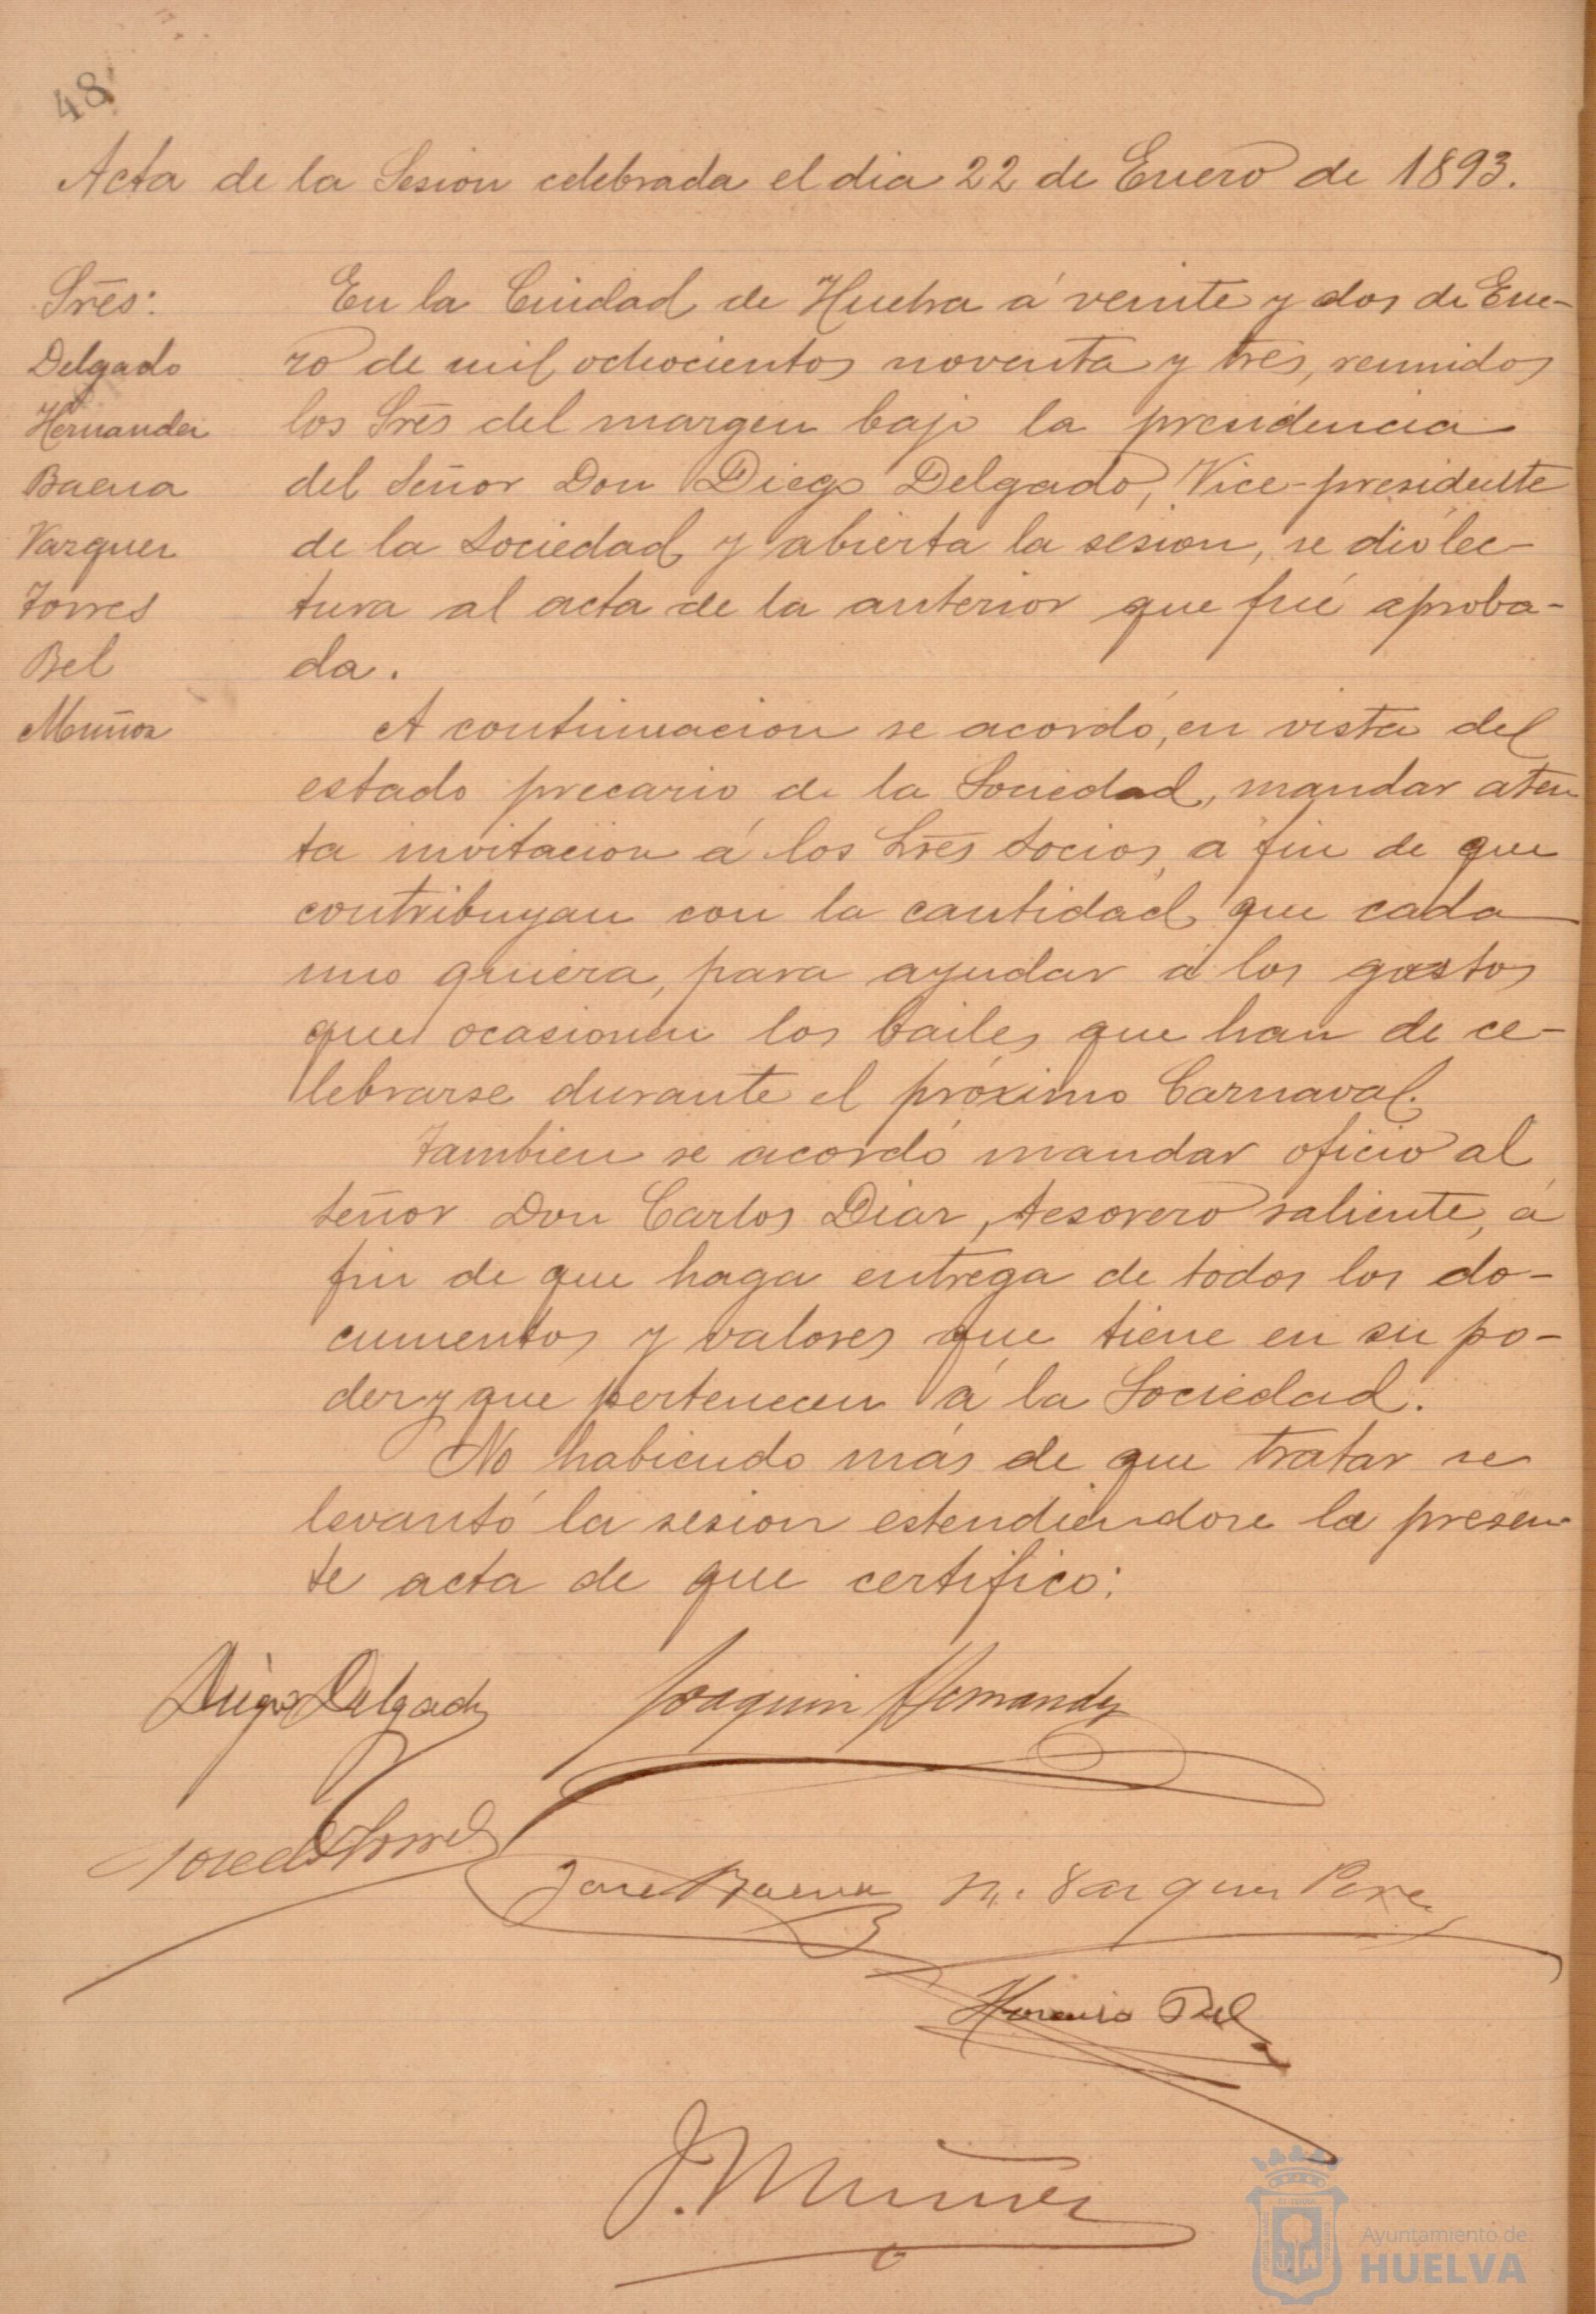 48
Acta de la Sesion celebrada el dia 22 de Enero de 1893.
Sres:
Delgado
Hernandez
Baena
Vazquez
Torres
Bel
Muñoz
En la Ciudad de Huelva á veinte y dos de Ene-
ro de mil ochocientos noventa y tres, reunidos
los Sres del margen bajo la presidencia
del Señor Don Diego Delgado, Vice-presidente
de la Sociedad y abierta la sesion, se dió lec-
tura al acta de la anterior que fué aproba-
da.
A continuacion se acordó, en vista del
estado precario de la Sociedad, mandar aten
ta invitacion á los Sres Socios, a fin de que
contribuyan con la cantidad que cada
uno quiera, para ayudar á los gastos
que ocasionen los bailes que han de ce-
lebrarse durante el próximo Carnaval.
Tambien se acordó mandar oficio al
Señor Don Carlos Diaz, tesorero saliente, á
fin de que haga entrega de todos los do-
cumentos y valores que tiene en su po-
der y que pertenecen á la Sociedad.
No habiendo más de que tratar se
levantó la sesion estendiendose la presen-
te acta de que certifico:
Diego Delgado Joaquin Hernandez
Jose de Torres
Jose Baena M. Vazquez Perez
Bel
J. Muñoz
Ayuntamiento de
HUELVA